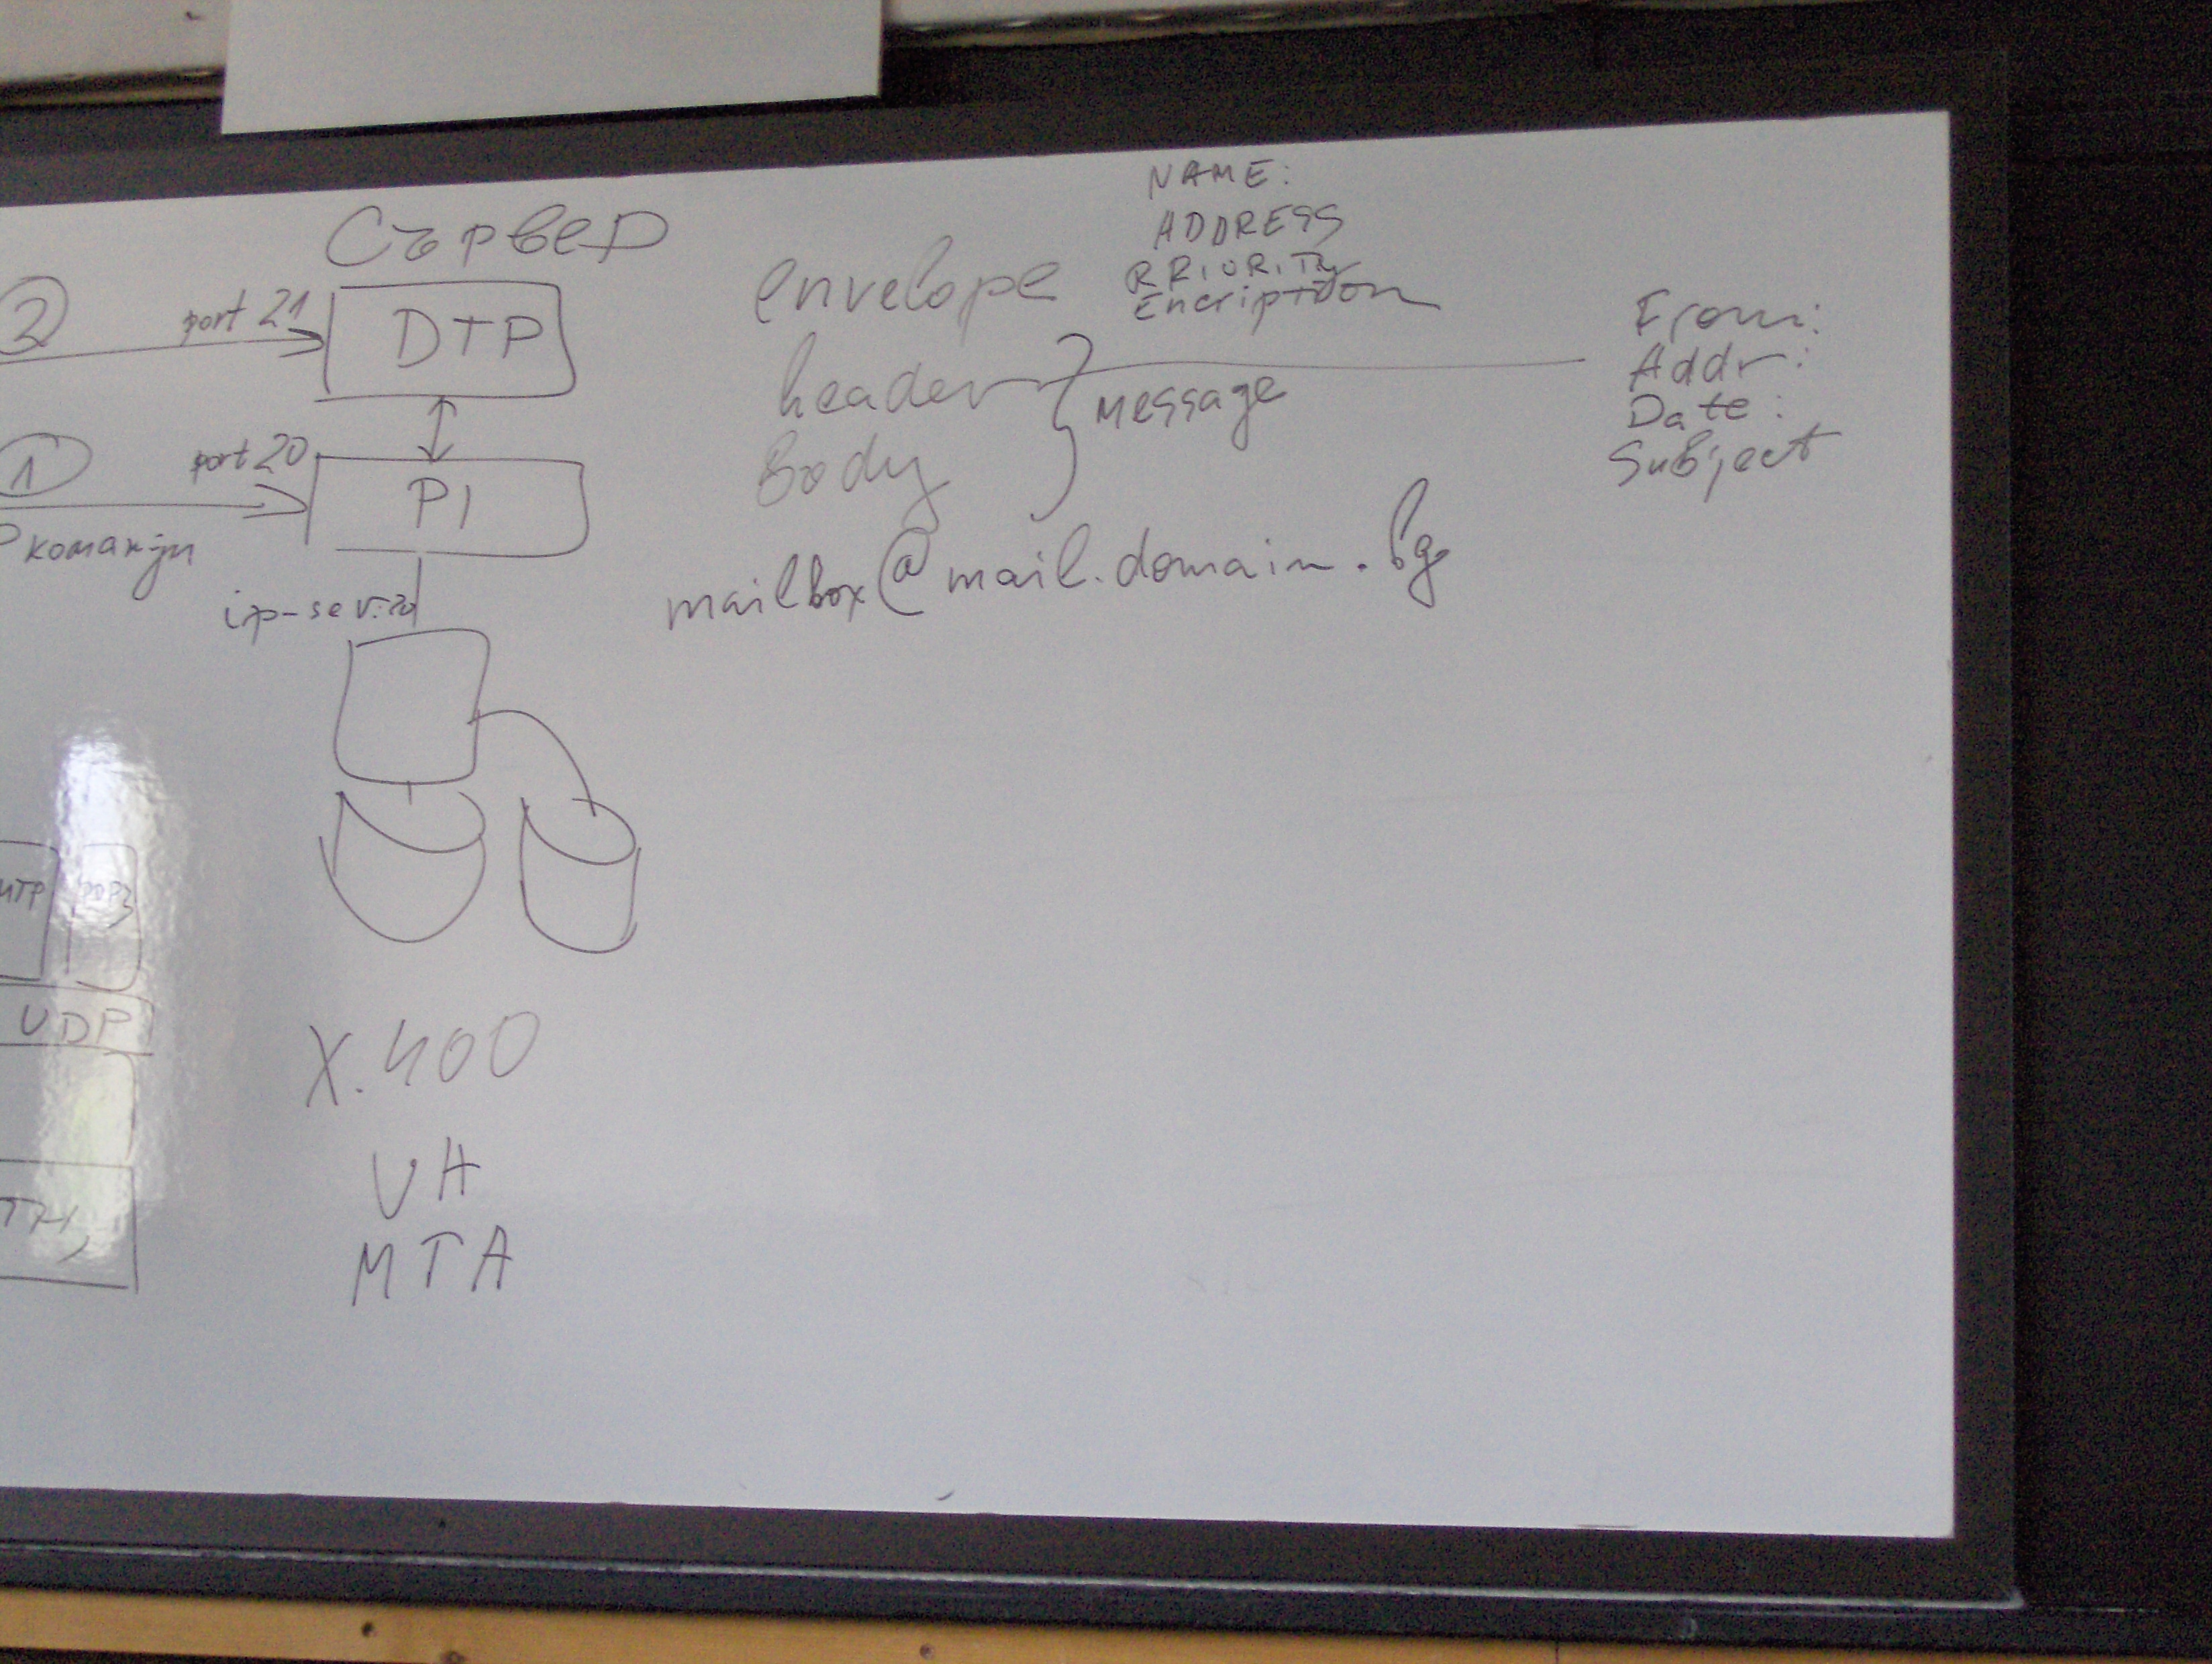 Сървер
2
port 21
DTP
1
port 20
PI
команди
X.400
UA
MTA
MTP
POP3
UDP
envelope
NAME:
ADDRESS
PRIORITY
Encription
header
Body
message
From:
Addr:
Date:
Subject
mailbox@mail.domain.bg